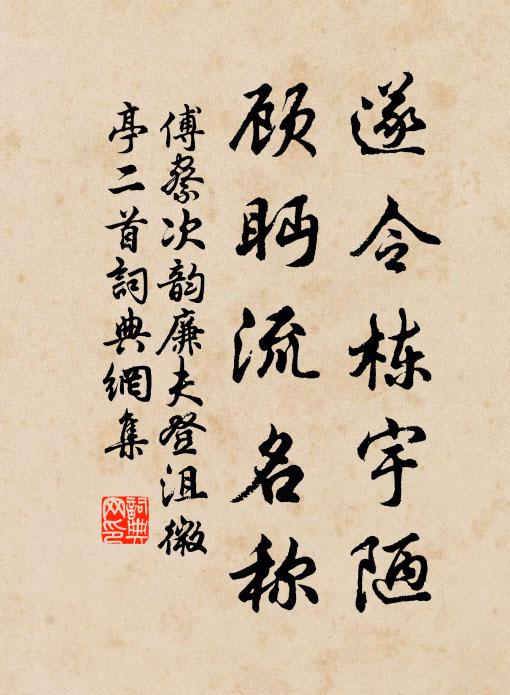 遂令栋宇陋
顾眄流名称
傅察次韵廉夫登沮微
亭二首詞典網集
詞典网印